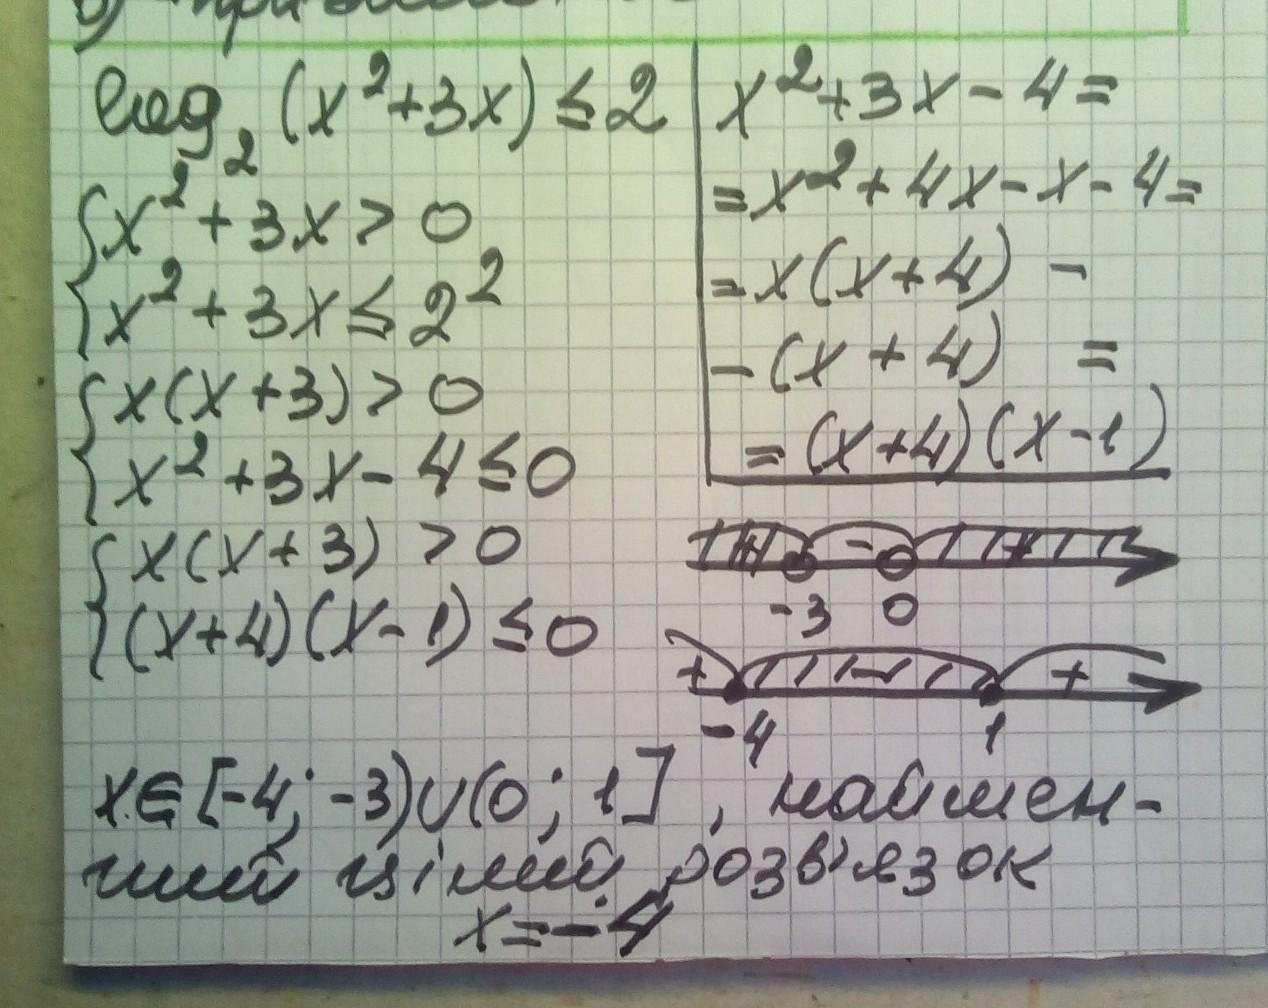 log₂(x²+3x)≤2
{x²+3x>0
{x²+3x≤2²
{x(x+3)>0
{x²+3x-4≤0
{x(x+3)>0
{(x+4)(x-1)≤0
x²+3x-4=
=x²+4x-x-4=
=x(x+4)-
-(x+4) =
=(x+4)(x-1)
+ - +
-3 0
+ - +
-4 1
x∈[-4;-3)∪(0;1], наймен-
ший цілий розв'язок
x=-4